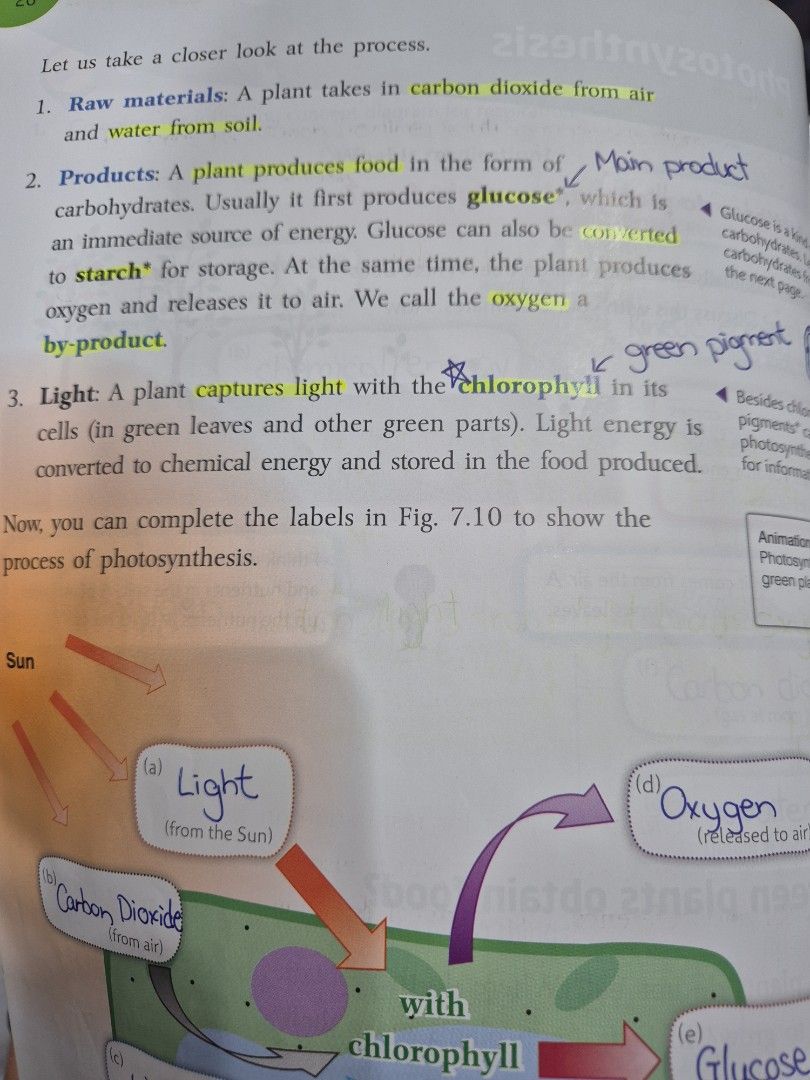 20
Let us take a closer look at the process.
1. Raw materials: A plant takes in carbon dioxide from air
and water from soil.
2. Products: A plant produces food in the form of
Main product
carbohydrates. Usually it first produces glucose*, which is
an immediate source of energy. Glucose can also be converted
to starch* for storage. At the same time, the plant produces
oxygen and releases it to air. We call the oxygen a
by-product.
Glucose is a kind
carbohydrates.
carbohydrates
the next page.
green pigment
3. Light: A plant captures light with the chlorophyll in its
cells (in green leaves and other green parts). Light energy is
converted to chemical energy and stored in the food produced.
Besides
pigments*
for
Now, you can complete the labels in Fig. 7.10 to show the
process of photosynthesis.
Animation
green
Sun
(a) Light
(from the Sun)
(d) Oxygen
(released to air
(b) Carbon Dioxide
(from air)
with
chlorophyll
(c)
(e)
Glucose